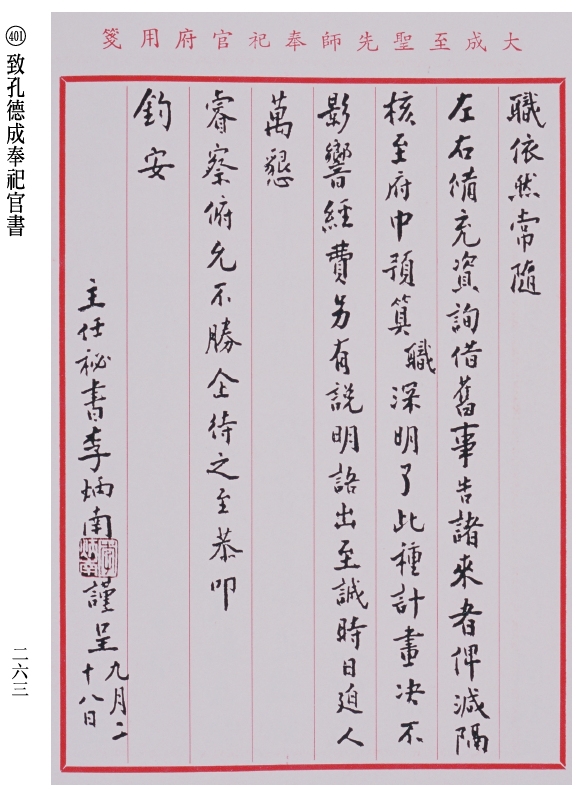 大成至聖先師奉祀官府用箋
職依然常隨
左右備充資詢借舊事告諸來者俾減隔
核至府中預算職深明了此種計畫决不
影響經費另有說明語出至誠時日迫人
萬懇
睿察俯允不勝企待之至恭叩
鈞安
主任祕書李炳南謹呈九月二十八日
李炳南
401 致孔德成奉祀官書
二六三